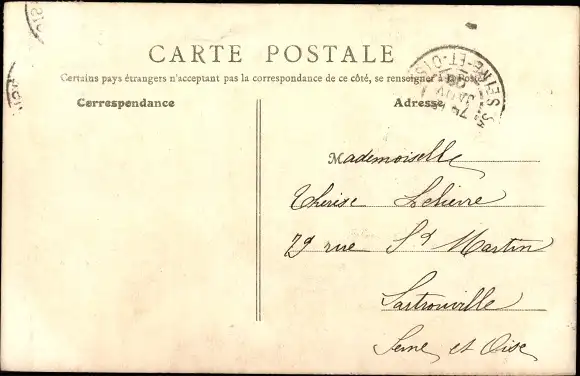 CARTE POSTALE
Certains pays étrangers n'acceptent pas la correspondance de ce côté, se renseigner à la Poste
Correspondance
Adresse
SEINE-ET-OISE
Mademoiselle
Thérèse Lelièvre
29 rue St Martin
Sartrouville
Seine et Oise